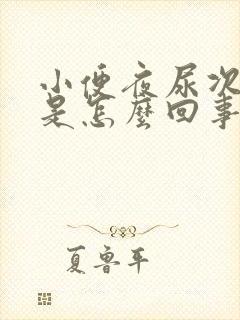 小便夜尿次
是怎麼回事
夏鲁平